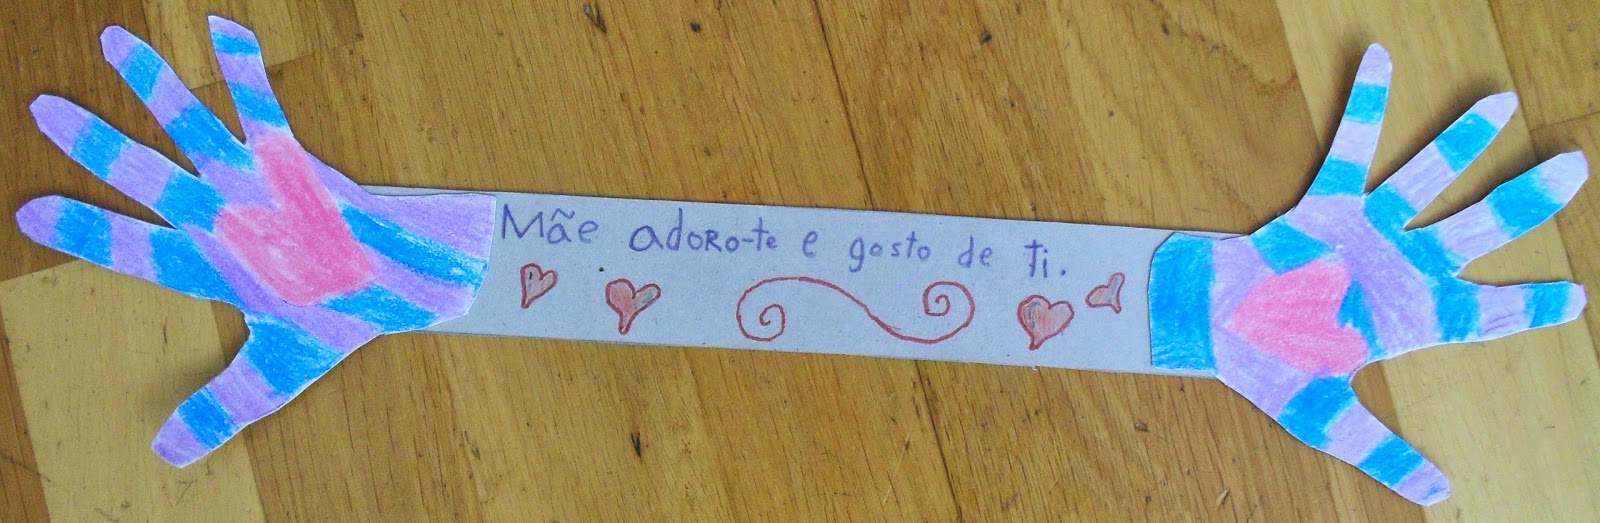 Mãe adoro-te e gosto de ti.